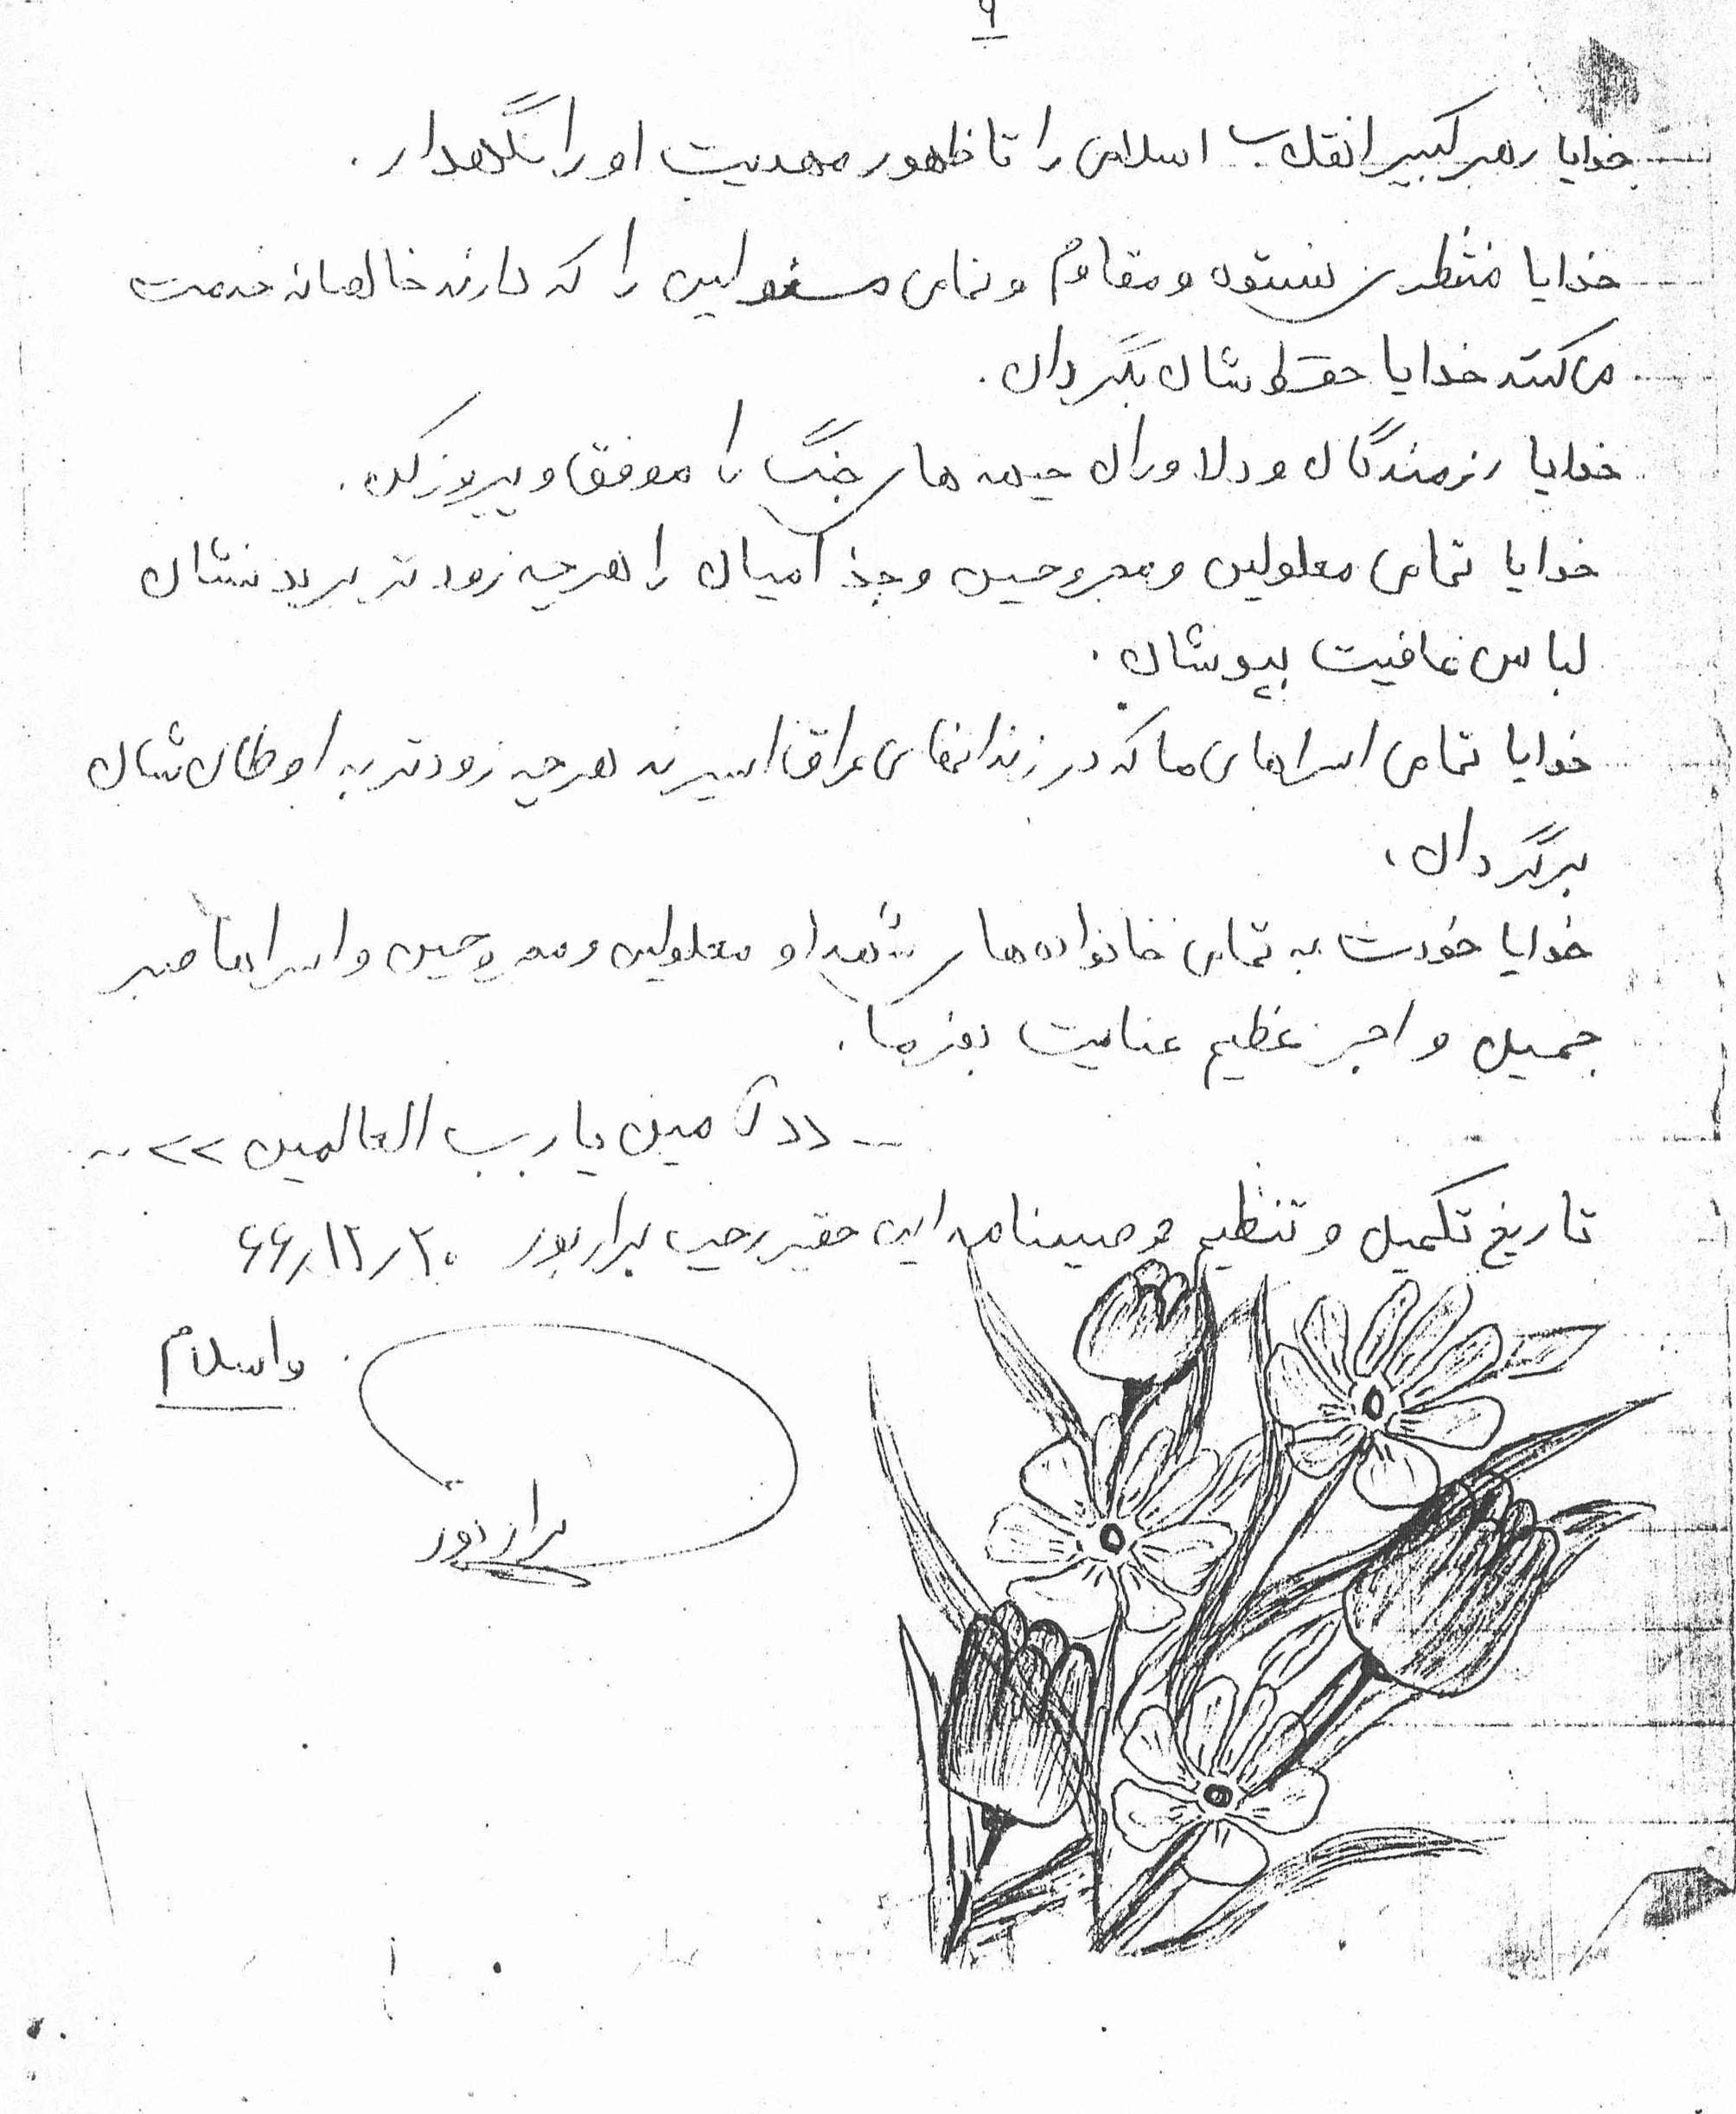 ۹
خدایا رهبر کبیر انقلاب اسلامی را تا ظهور مهدیت او را نگهدار.
خدایا منتظری نستوه و مقاوم و تمامی مسئولین را که دارند خالصانه خدمت
می کنند خدایا حفظ شان بگردان.
خدایا رزمندگان و دلاوران جبهه های جنگ را موفق و پیروز کن.
خدایا تمامی معلولین و مجروحین و جذامیان را هر چه زودتر بر بدنشان
لباس عافیت بپوشان.
خدایا تمامی اسراهای ما که در زندانهای عراق اسیرند هر چه زودتر به اوطان شان
برگردان.
خدایا خودت به تمامی خانواده های شهدا و معلولین و مجروحین و اسراها صبر
جمیل و اجر عظیم عنایت بفرما.
<< آمین یا رب العالمین >>
تاریخ تکمیل و تنظیم وصیتنامه این حقیر رجب برارپور ۶۶/۱۲/۲۰
واسلام
برارپور